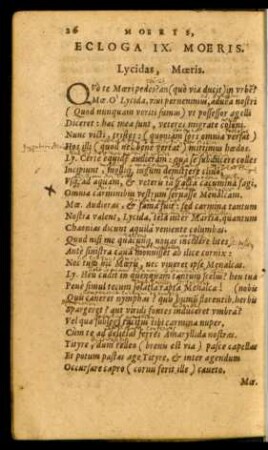 26 MOERIS,
ECLOGA IX. MOERIS.
Lycidas, Mœris.
QVò te Mœri pedes? an (quò via ducit) in vrbẽ?
Mœ. O Lycida, viui peruenimus, aduena nostri
(Quod nunquam veriti sumus) vt possessor agelli
Diceret: hæc mea sunt, veteres migrate coloni.
Nunc victi, tristes: (quoniam fors omnia versat)
Hos illi (quod nec bene vertat) mittimus hœdos.
Ly. Certè equidẽ audieram: qua se subducere colles
Incipiunt, mollíq; iugum demittere cliuo,
ad aquam, & veteris iã fracta cacumina fagi,
Omnia carminibus vestrum seruasse Menalcam.
Mœ. Audieras, & fama fuit: sed carmina tantum
Nostra valent, Lycida, tela inter Martia, quantum
Chaonias dicunt aquila veniente columbas.
Quod nisi me quacũq, nouas incidere lites
Antè sinistra caua monuisset ab ilice cornix:
Nec tuus hic Mœris, nec viueret ipse Menalcas.
Ly. Heu cadit in quenquam tantum scelus? heu tua
Penè simul tecum solatia rapta Menalca! (nobis
Quis caneret nymphas? quis humũ florentib. herbis
Spargeret? aut viridi fontes induceret vmbra?
Vel quæ tibi carmina nuper,
Cùm te ad delicias ferres Amaryllida nostras.
Tityre, dum redeo (breuis est via) pasce capellas
Et potum pastas age Tityre, & inter agendum
Occursare capro (cornu ferit ille) caueto.
Mœ.